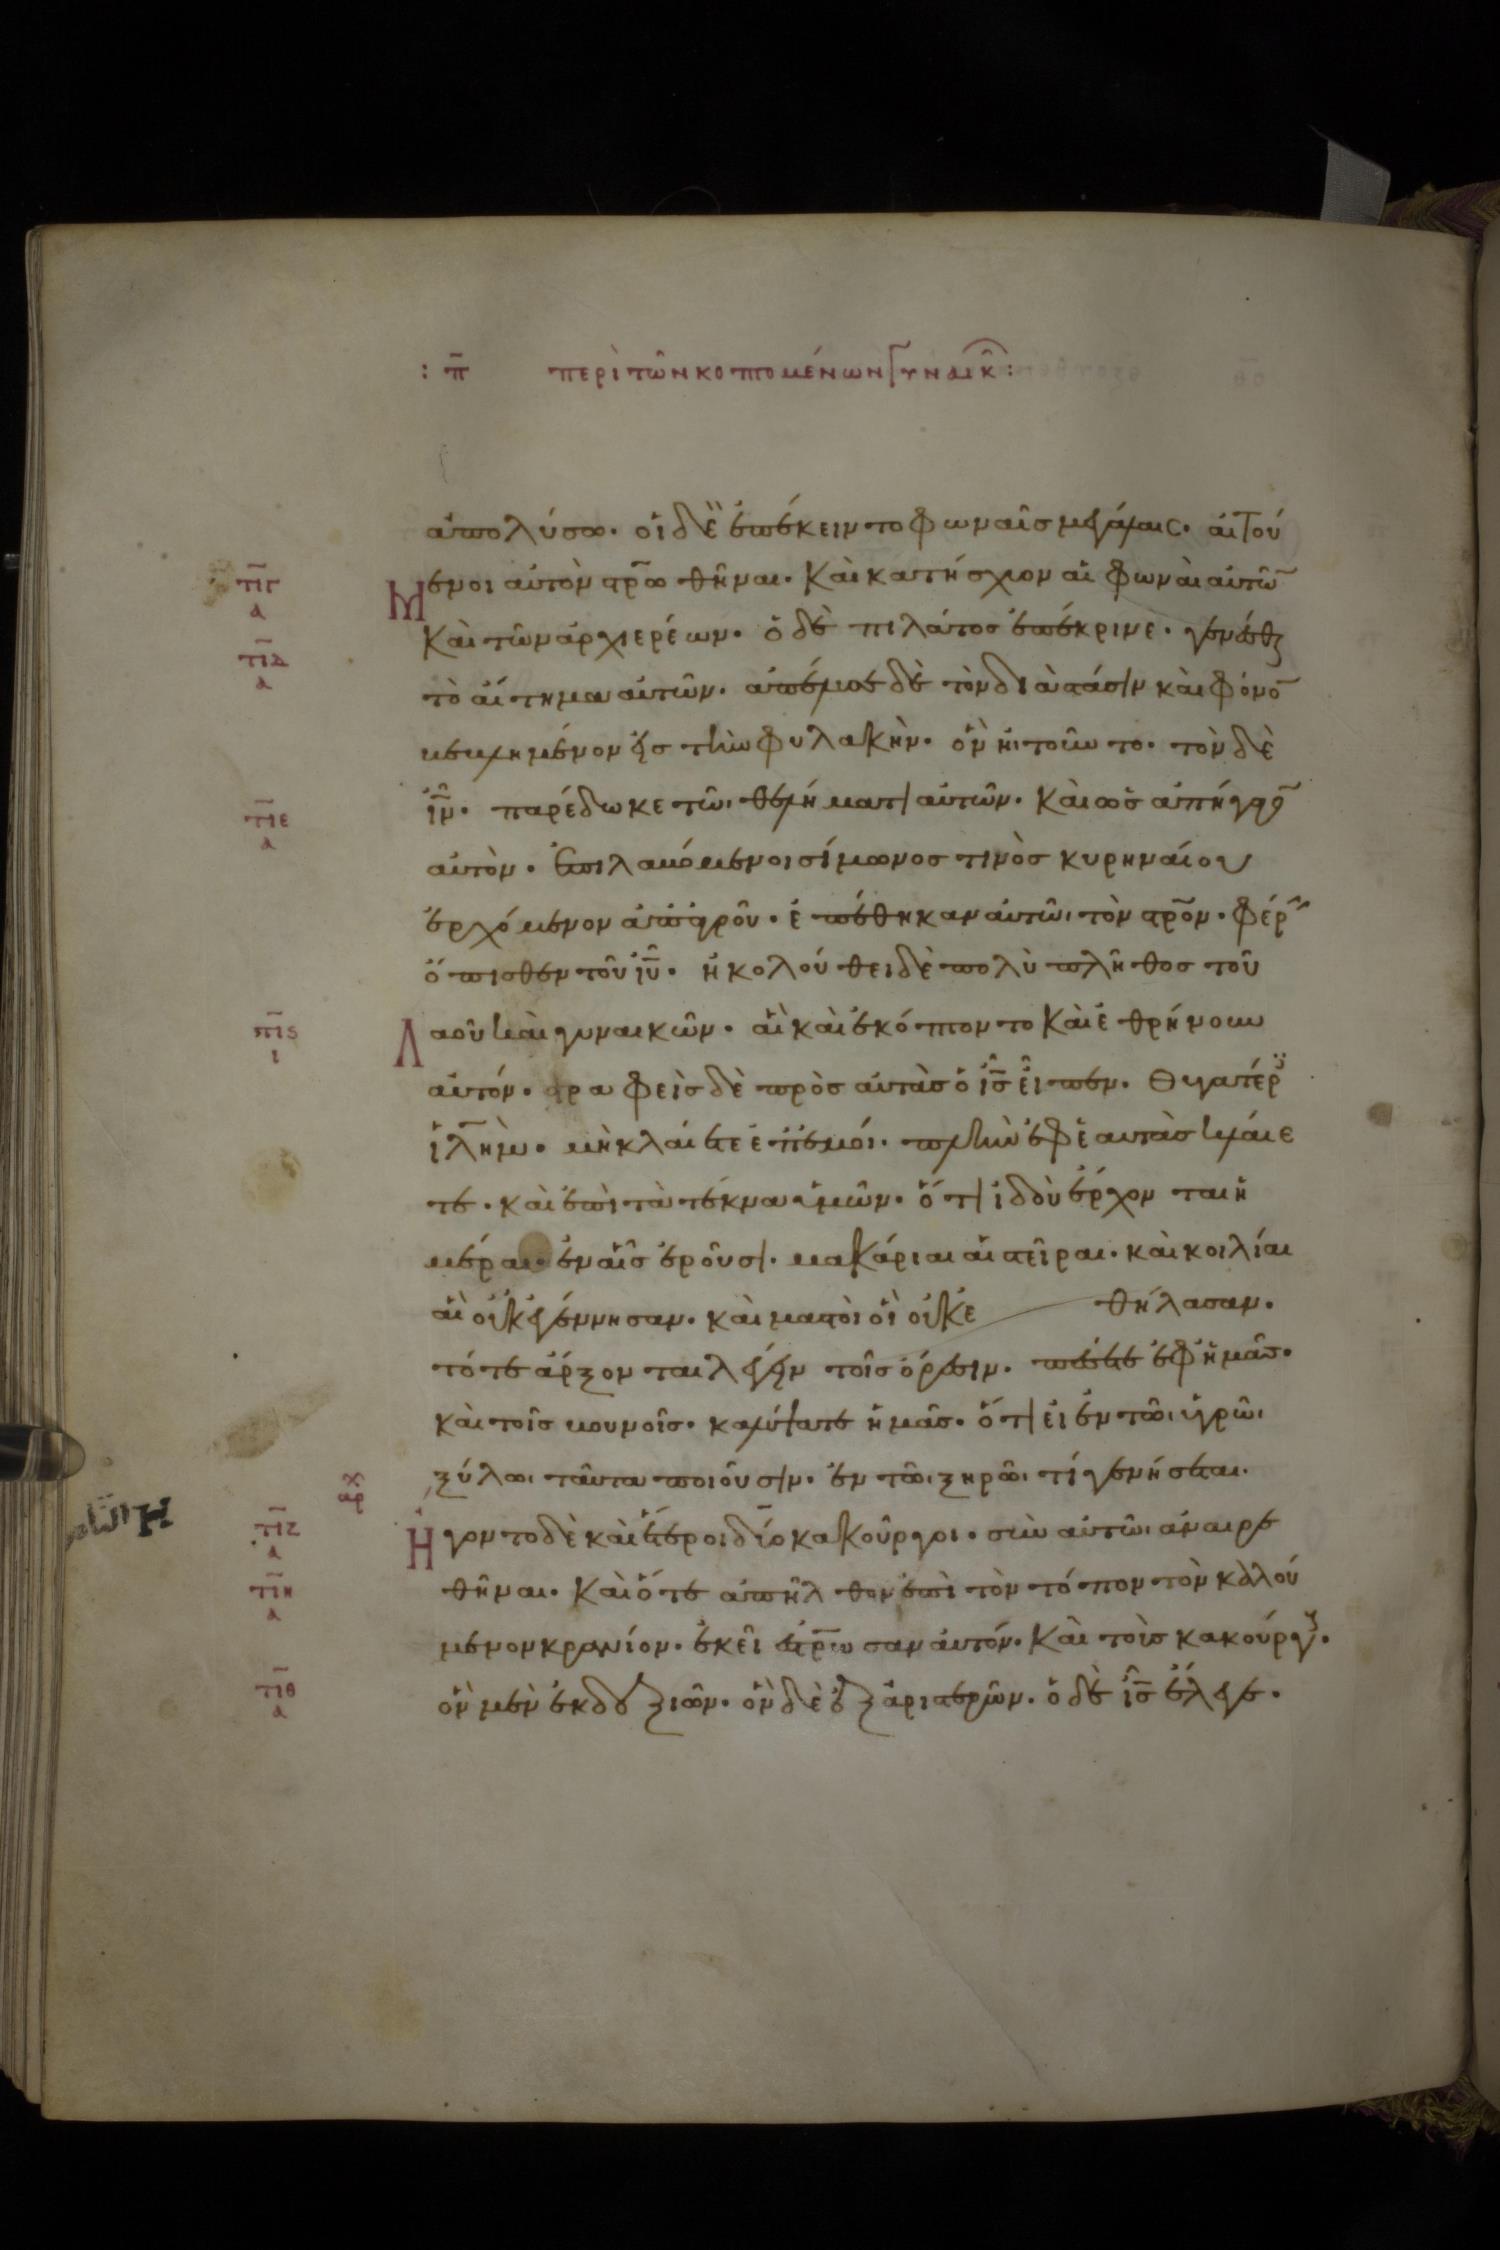 : π̅ περὶ τῶν κοπτομένων γυναικ̑ :
ἀπολύσω. οἱ δὲ ἐπέκειντο φωναῖς μεγάλαις. αἰτού
μενοι αὐτὸν σ̅ρωθῆναι. Καὶ κατήσχυον αἱ φωναὶ αὐτῶ̅
Καὶ τῶν ἀρχιερέων. ὁ δὲ πιλάτος ἐπέκρινε. γενέσθαι
τὸ αἴτημα αὐτῶν. ἀπέλυσε δὲ τὸν διὰ στάσιν καὶ φόνο̅
βεβλημένον εἰς τὴν φυλακὴν. ὃν ἠιτοῦντο. τὸν δὲ
ι̅ν̅. παρέδωκε τῶι θελήματι αὐτῶν. Καὶ ὡς ἀπήγαγο̅
αὐτὸν. ἐπιλαβόμενοι σίμωνος τινὸς κυρηναίου
ἐρχόμενον ἀπ' ἀγροῦ. ἐπέθηκαν αὐτῶι τὸν σ̅ρ̅ον. φέρ
ὄπισθεν τοῦ ι̅υ̅. ἠκολούθει δὲ πολὺ πλῆθος τοῦ
λαοῦ καὶ γυναικῶν. αἳ καὶ ἐκόπτοντο Καὶ ἐθρήνουν
αὐτόν. στραφεὶς δὲ πρὸς αὐτὰς ὁ ι̅ς̅ εἶπεν. Θυγατέρ
ι̅λ̅ημ. μὴ κλαίετε ἐπ' ἐμοί. πλὴν ἐφ' ἑαυτὰς κλαίε
τε. καὶ ἐπὶ τὰ τέκνα ὑμῶν. ὅτι ἰδοὺ ἔρχονται ἡ
μέραι. ἐν αἷς ἐροῦσι. μακάριαι αἱ στεῖραι. καὶ κοιλίαι
αἳ οὐκ ἐγέννησαν. καὶ μαστοὶ οἳ οὐκ ἐ θήλασαν.
τότε ἄρξονται λέγειν τοῖς ὄρεσιν. πέσετε ἐφ' ἡμᾶς.
καὶ τοῖς βουνοῖς. καλύψατε ἡμᾶς. ὅτι εἰ ἐν τῶι ὑγρῶι
ξύλωι ταῦτα ποιοῦσιν. ἐν τῶι ξηρῶι τί γενήσεται.
ἤγοντο δὲ καὶ ἕτεροι δύο κακοῦργοι. σὺν αὐτῶι ἀναιρε
θῆναι. Καὶ ὅτε ἀπῆλθον ἐπὶ τὸν τόπον τὸν καλού
μενον κρανίον. ἐκεῖ ἐσ̅ρωσαν αὐτόν. Καὶ τοὺς κακούργ.
ὃν μὲν ἐκ δεξιῶν. ὃν δὲ ἐξ ἀριστερῶν. ὁ δὲ ι̅ς̅ ἔλεγε.
τ̅ι̅γ̅
α
τ̅ι̅δ̅
α
τ̅ι̅ε̅
α
τ̅ι̅ς̅
ι
αρχ
τ̅ι̅ζ̅
α
τ̅ι̅η̅
α
τ̅ι̅θ̅
α